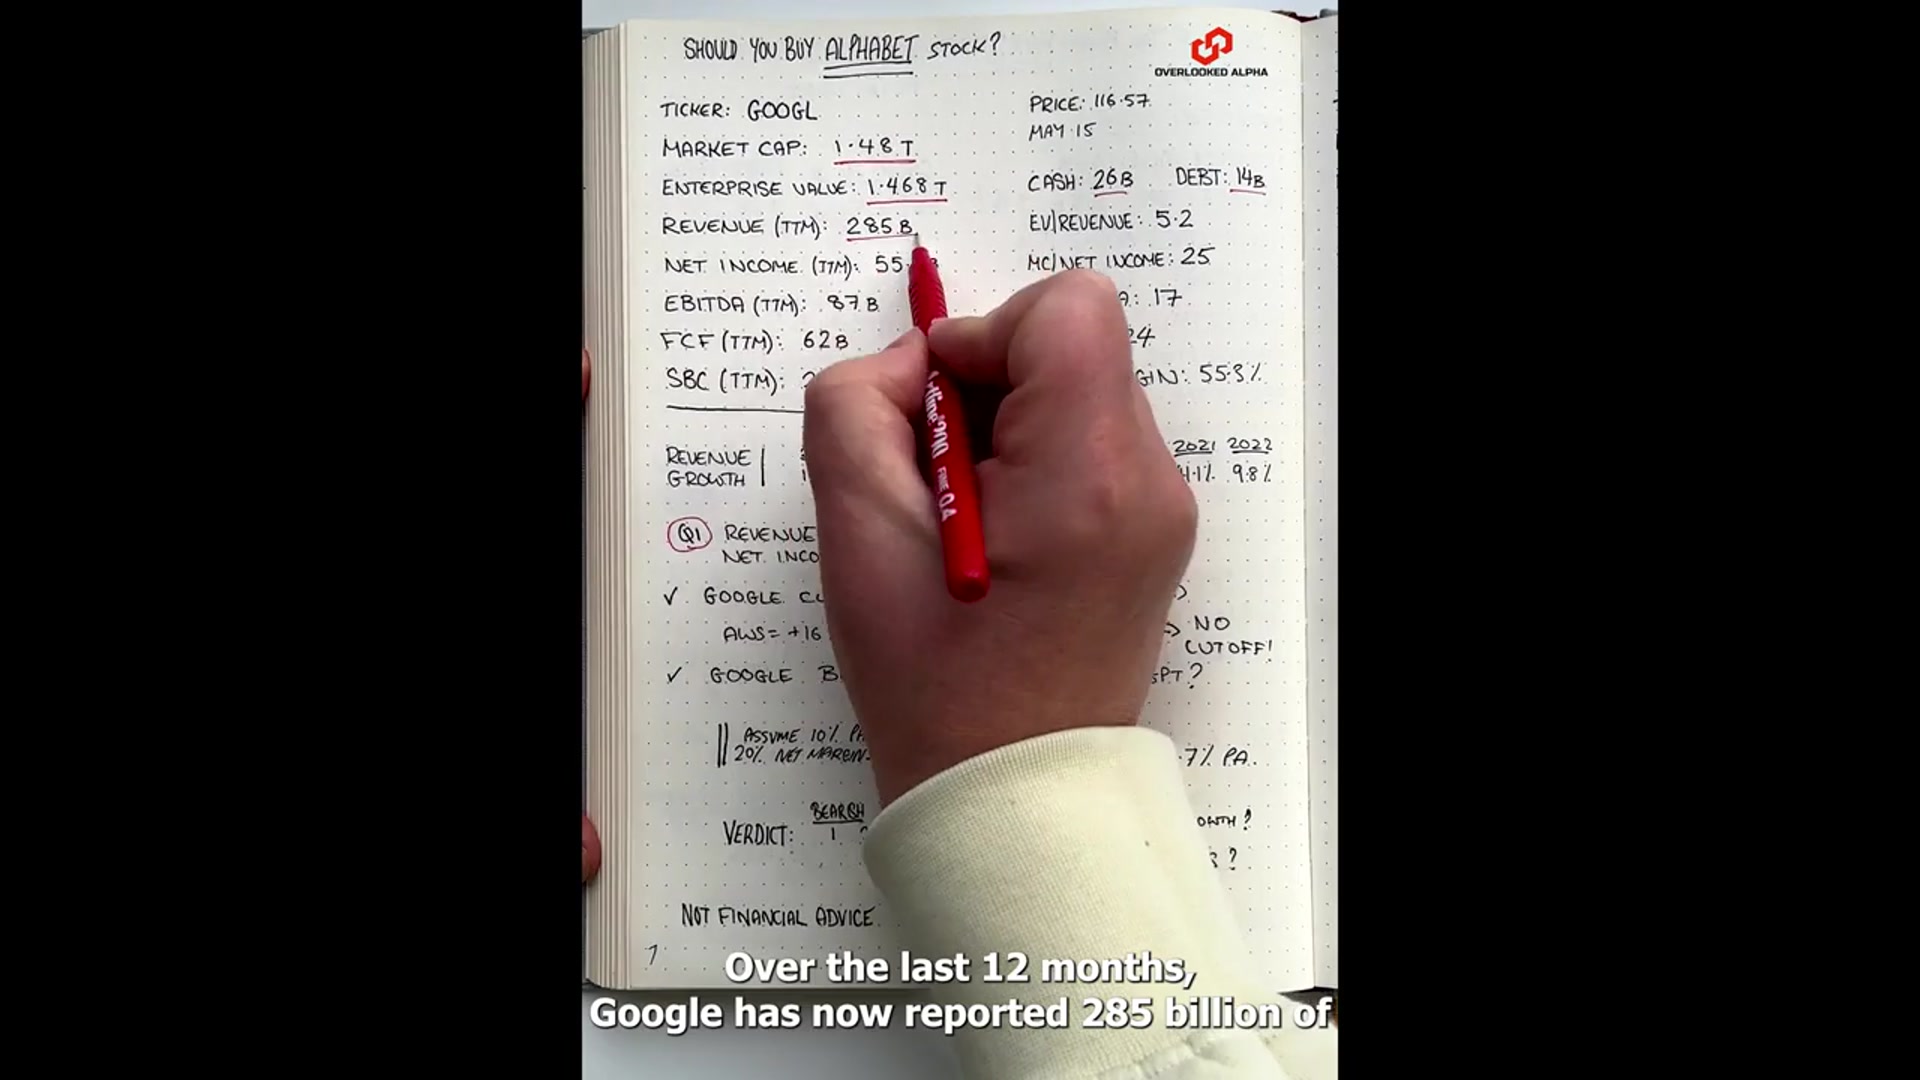 SHOULD YOU BUY ALPHABET STOCK?
OVERLOOKED ALPHA
TICKER: GOOGL
PRICE: 116.57
MAY 15
MARKET CAP: 1.48 T
ENTERPRISE VALUE: 1.468 T
CASH: 26B DEBT: 14B
REVENUE (TTM): 285 B
EV/REVENUE: 5.2
NET INCOME (TTM): 55
MC/NET INCOME: 25
EBITDA (TTM): 87 B
17
FCF (TTM): 62B
24
SBC (TTM):
55.3%
REVENUE
GROWTH
2021 2022
9.8%
Q1 REVENUE
NET
GOOGLE
AWS = +16
NO
CUTOFF!
GOOGLE
ASSUME 10%
20% NET MARGIN
7% PA.
VERDICT: BEARISH
1
NOT FINANCIAL ADVICE
Over the last 12 months,
Google has now reported 285 billion of
Artline 200 FINE 0.4